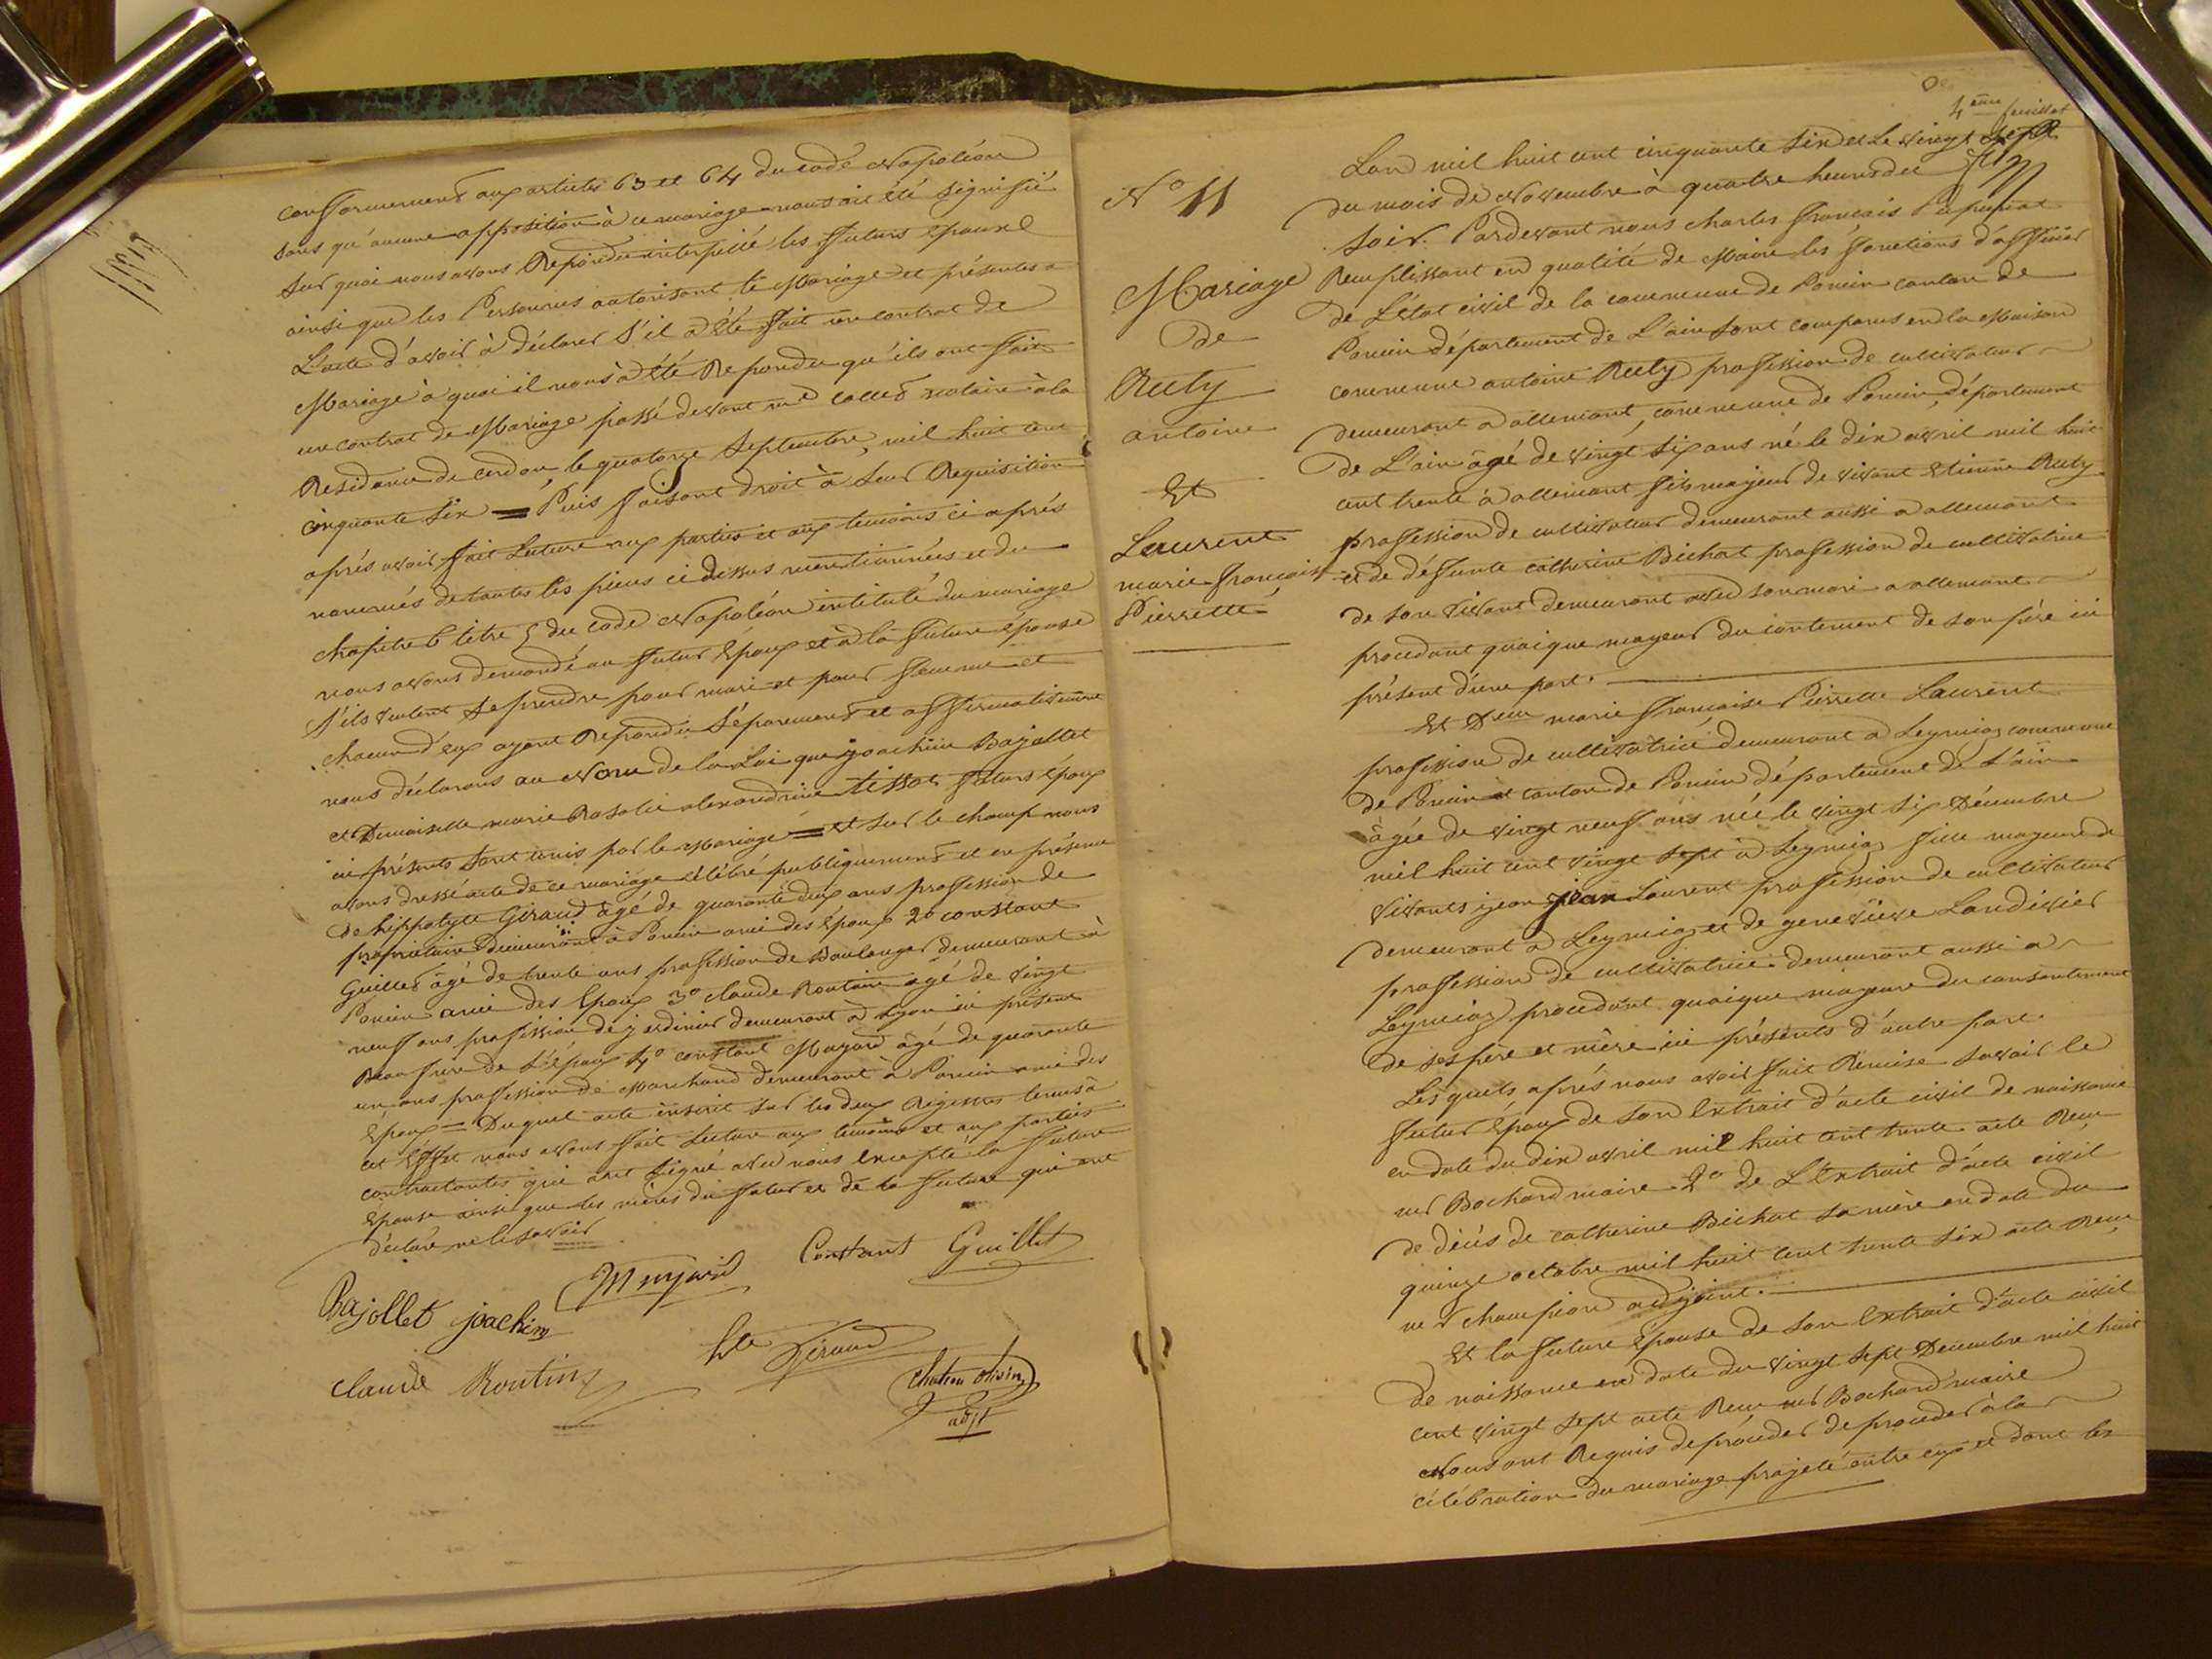 conformement aux articles 63 et 64 du code Napoléon
sans qu'aucune opposition à ce mariage nous ait été signifié
sur quoi nous avons Repondu interpellé les futurs épaux
ainsi que les Personnes autorisant le Mariage et présentes a
L'acte d'avoir à déclarer s'il a été fait un contrat de
Mariage à quoi il nous à été Repondu qu'ils ont fait
un contrat de Mariage passé devant me notaire à la
Residence de cerdon, le quatorze Septembre, mil huit cent
cinquante six = Puis faisant droit à leur Requisition
après avoir fait Lecture aux parties et aux temoins ci après
nommés de toutes les pieces ci dessus mentionnées et du
chapitre 6 titre 5 du code Napoléon intitulé du mariage
nous avons demandé au futur Epoux et à la future épouse
s'ils veulent se prendre pour mari et pour femme et
chacun d'eux ayant Repondu séparement et affirmativement
nous déclarons au Nom de la Loi que joachim Bajollet
et Demoiselle marie Rosalie alexandrine Tissot futurs épaux
ici présents sont unis par le Mariage = et sur le champ nous
avons dressé acte de ce mariage célébré publiquement et en présence
de hippolyte Giraud âgé de quarante deux ans profession de
propriétaire demeurant à Poncin ami des Epoux 2o constant
Guillet âgé de trente ans profession de Boulanger demeurant à
Poncin ami des Epoux 3o claude Routin agé de vingt
neuf ans profession de jardinier demeurant à Lyon ici présent
Beau frere de L'époux 4o constant Mayard âgé de quarante
un ans profession de Marchand demeurant à Poncin ami des
Epoux = Duquel acte inscrit sur les deux Régistres tenus à
cet Effet nous avons fait Lecture aux temoins et aux parties
contractantes qui ont signé avec nous Excepté la future
Epouse ainsi que les mères du futur et de la future qui ont
déclaré ne le savoir
Bajollet joachim Constant Guillet
claude Routin hte Giraud
adjt
4eme feuillet
No 11
Mariage
de
Ruty
antoine
Et
Laurent
marie françoise
Pierrette
Lan mil huit cent cinquante six et Le vingt sept
du mois de Novembre à quatre heures du
soir. Pardevant nous charles français
Remplissant en qualité de Maire les fonctions d'officier
de L'état civil de la commune de Poncin canton de
Poncin département de L'ain sont comparus en la Maison
commune antoine Ruty profession de cultivateur
demeurant a allement, commune de Poncin, département
de L'ain âgé de vingt six ans né le dix avril mil huit
cent trente à allement fils majeur de vivant Etienne Ruty
profession de cultivateur demeurant aussi a allement
et de défunte catherine Bichat profession de cultivatrice
de son vivant demeurant avec son mari a allement
procedant quoique mayeur du contement de son père ici
présent d'une part.
Et Delle marie francaise Pierrette Laurent
profession de cultivatrice demeurant à Leymiaz commune
de Poncin et canton de Poncin département de L'ain
âgée de vingt neuf ans née le vingt six Décembre
mil huit cent vingt sept à Leymiaz fille mageure de
vivants jean jean Laurent profession de cultivateur
demeurant à Leymiaz et de genevieve Landivier
profession de cultivatrice demeurant aussi a
Leymiaz procedant quoique majeure du consentement
de ses père et mère ici présents d'autre part.
Lesquels après nous avoir fait Remise savoir le
futur époux de son Extrait d'acte civil de naissance
en date du dix avril mil huit cent trente acte Reçu
mr Bochard maire 2o de L'Extrait d'acte civil
de décés de catherine Bichat sa mère en date du
quinze octobre mil huit cent trente six acte Reçu
mr champion adjoint.
Et la future épouse de son Extrait d'acte civil
de naissance en date du vingt sept Décembre mil huit
cent vingt sept acte Reçu mr Bochard maire
Nous ont Requis de procéder de proceder à la
célébration du mariage projeté entre eux et dont les